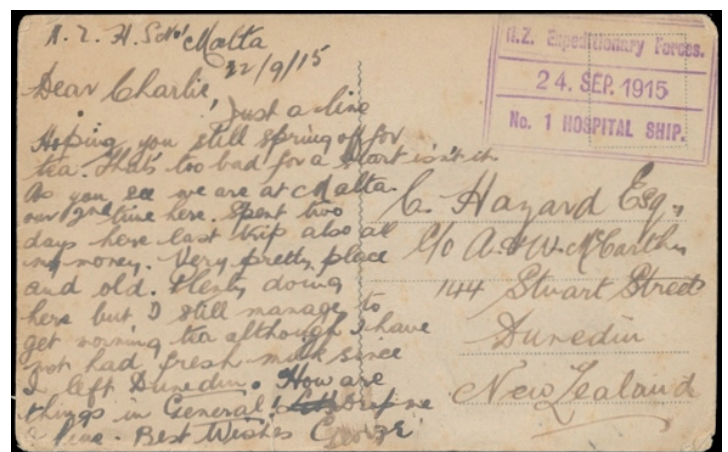 N.Z.H.S. No 1 Malta
22/9/15
Dear Charlie,
Just a line
Hoping you still spring off for
tea. That's too bad for a start isn't it.
As you see we are at Malta
our 2nd time here. Spent two
days here last trip also all
my money. Very pretty place
and old. Plenty doing
here but I still manage to
get morning tea although I have
not had fresh milk since
I left Dunedin. How are
things in General! drop me
a line. Best Wishes George
N.Z. Expeditionary Forces.
24. SEP. 1915
No. 1 HOSPITAL SHIP.
C. Hazard Esq.,
C/o A. & W. McCarthy
144 Stuart Street
Dunedin
New Zealand